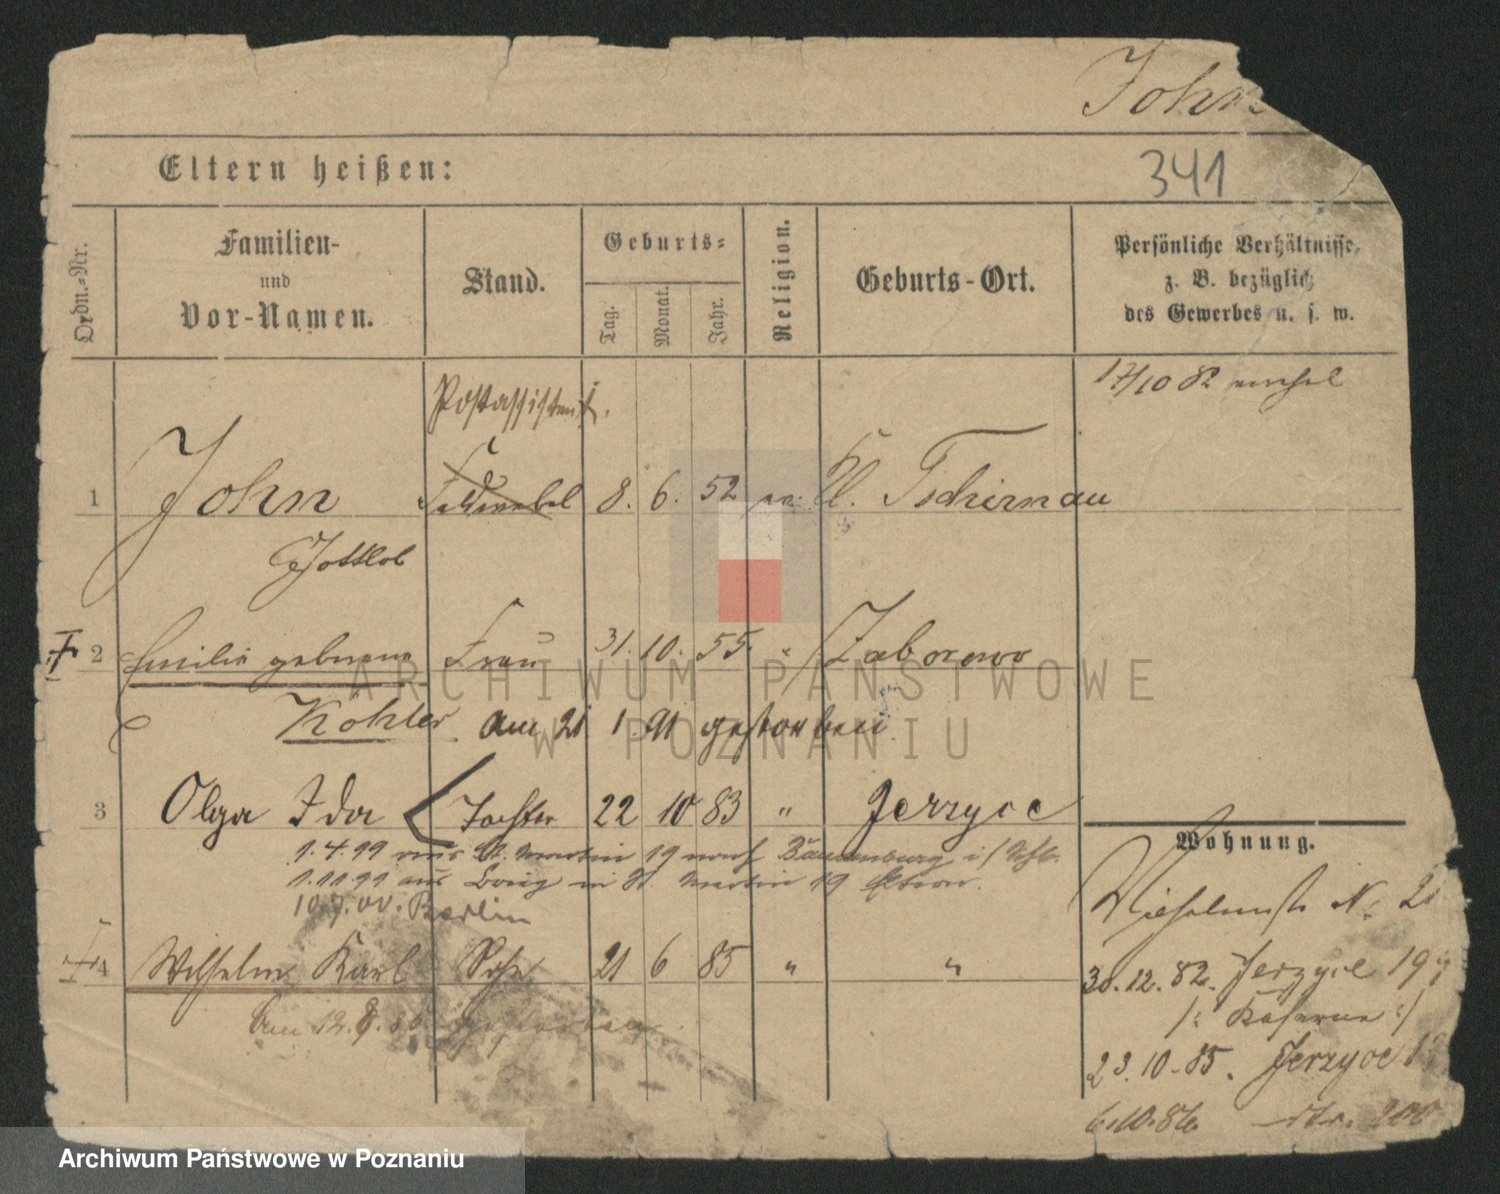 John
Eltern heißen:
341
Ordn.-Nr.
Familien-
und
Vor-Namen.
Stand.
Geburts-
Tag.
Monat.
Jahr.
Religion.
Geburts-Ort.
Persönliche Verhältnisse,
z. B. bezüglich
des Gewerbes u. s. w.
17/10 82
Postassistent.
1 John Feldwebel 8. 6. 52 ev. Kl. Tschirnau
Gottlob
2 Emilie geborene Frau 31. 10. 55. " Zaborowo
Köhler am 21 1. 91 gestorben
3 Olga Ida Tochter 22 10 83 " Jerzyce
1.4.99 aus St. Martin 19 nach
1.11.99 aus in St. Martin 19
Berlin
4 Wilhelm Karl Sohn 21 6 85 " "
am 12. 8. 86 gestorben.
Wohnung.
Wilhelmstr N. 21
30.12.82. Jerzyce
/: Kaserne :/
23.10.85. Jerzyce
6.10.86 dtr. 208
ARCHIWUM PAŃSTWOWE
W POZNANIU
Archiwum Państwowe w Poznaniu